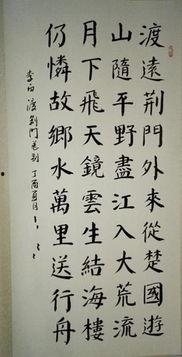 渡遠荆門外來從楚國遊
山隨平野盡江入大荒流
月下飛天鏡雲生結海樓
仍憐故鄉水萬里送行舟
李白渡荆門送别 丁酉